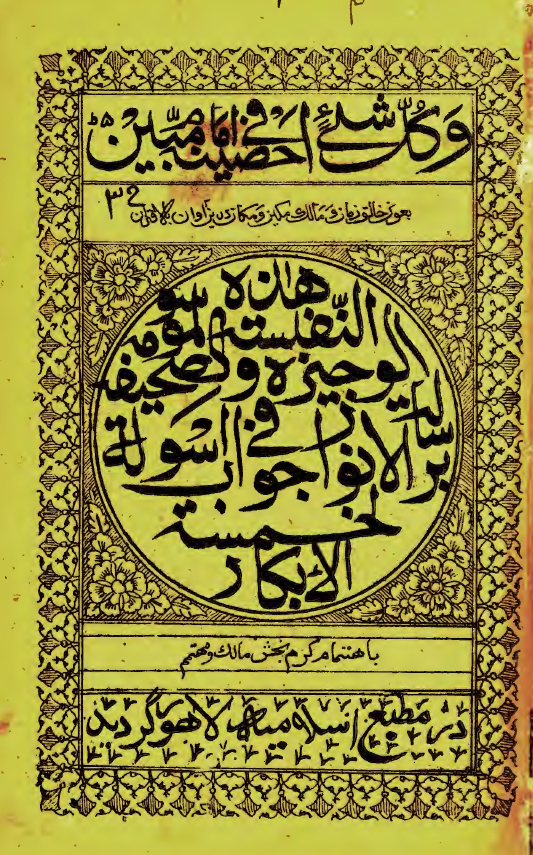 وَكُلَّ شَيْءٍ اَحْصَيْنٰهُ فِي اِمَامٍ مُّبِيْنٍ
بعون خالق زمان و مالك مكين و مكان
هٰذه
النّفيسة الموسومه
الوجيزه والصحيفه
برسالة الانوار في جواب اسولة
خمسة
الابكار
باهتمام كرم بخش مالك و مهتمم
در مطبع اسلاميه لاهور گرديد